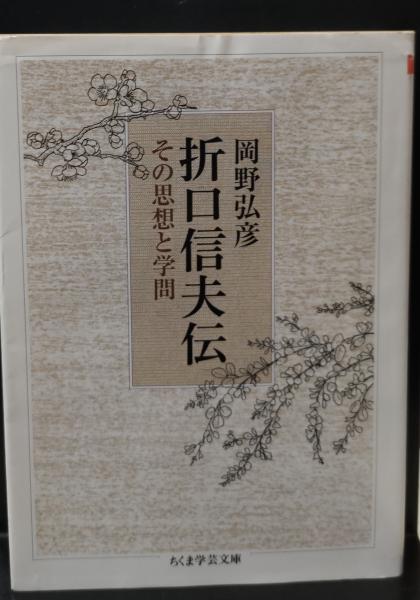 岡野弘彦
折口信夫伝
その思想と学問
ちくま学芸文庫